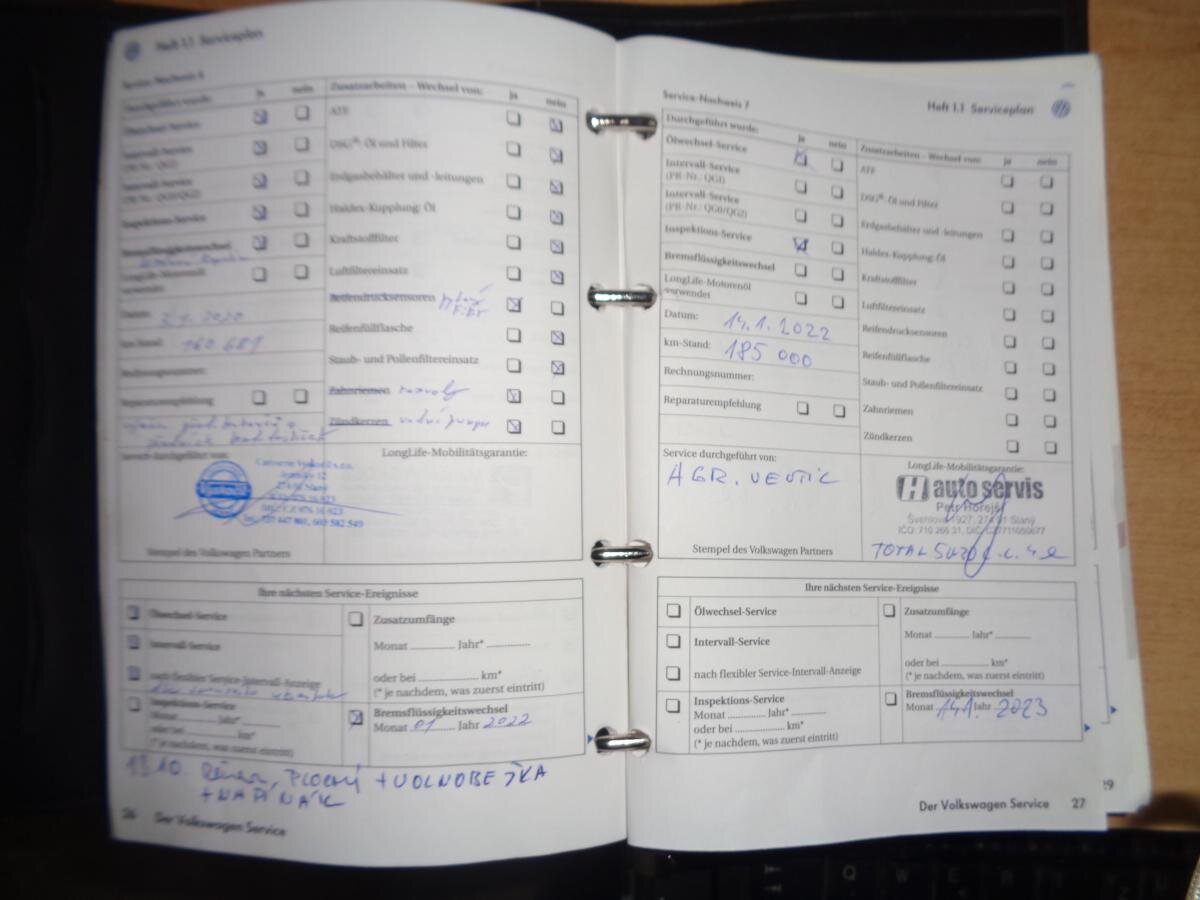 Heft 1.1 Serviceplan
Service-Nachweis 6
Durchgeführt wurde: ja nein
Ölwechsel-Service
Intervall-Service
(PR-Nr.: QG1)
Intervall-Service
(PR-Nr.: QG0/QG2)
Inspektions-Service
Bremsflüssigkeitswechsel
LongLife-Motorenöl
verwendet
Datum: 2020
km-Stand: 160 681
Rechnungsnummer:
Reparaturempfehlung
Service durchgeführt von:
274 01 Slaný
Stempel des Volkswagen Partners
Zusatzarbeiten – Wechsel von: ja nein
ATF
DSG®: Öl und Filter
Erdgasbehälter und -leitungen
Haldex-Kupplung: Öl
Kraftstofffilter
Luftfiltereinsatz
Reifendrucksensoren
Reifenfüllflasche
Staub- und Pollenfiltereinsatz
Zahnriemen rozvody
Zündkerzen
LongLife-Mobilitätsgarantie:
Ihre nächsten Service-Ereignisse
Ölwechsel-Service
Intervall-Service
nach flexibler Service-Intervall-Anzeige
Inspektions-Service
Monat Jahr*
oder bei km*
(* je nachdem, was zuerst eintritt)
Zusatzumfänge
Monat Jahr*
oder bei km*
(* je nachdem, was zuerst eintritt)
Bremsflüssigkeitswechsel
Monat 01 Jahr 2022
+ VOLNOBEŽKA
+ NAPÍNÁK
26 Der Volkswagen Service
Service-Nachweis 7
Heft 1.1 Serviceplan
Durchgeführt wurde: ja nein
Ölwechsel-Service
Intervall-Service
(PR-Nr.: QG1)
Intervall-Service
(PR-Nr.: QG0/QG2)
Inspektions-Service
Bremsflüssigkeitswechsel
LongLife-Motorenöl
verwendet
Datum: 14.1.2022
km-Stand: 185 000
Rechnungsnummer:
Reparaturempfehlung
Service durchgeführt von:
AGR. VENTIL
Stempel des Volkswagen Partners
Zusatzarbeiten – Wechsel von: ja nein
ATF
DSG®: Öl und Filter
Erdgasbehälter und -leitungen
Haldex-Kupplung: Öl
Kraftstofffilter
Luftfiltereinsatz
Reifendrucksensoren
Reifenfüllflasche
Staub- und Pollenfiltereinsatz
Zahnriemen
Zündkerzen
LongLife-Mobilitätsgarantie:
H auto servis
Petr Hořejší
1927, 274 01 Slaný
TOTAL
Ihre nächsten Service-Ereignisse
Ölwechsel-Service
Intervall-Service
nach flexibler Service-Intervall-Anzeige
Inspektions-Service
Monat Jahr*
oder bei km*
(* je nachdem, was zuerst eintritt)
Zusatzumfänge
Monat Jahr*
oder bei km*
(* je nachdem, was zuerst eintritt)
Bremsflüssigkeitswechsel
Monat 14.1. Jahr 2023
Der Volkswagen Service 27
29